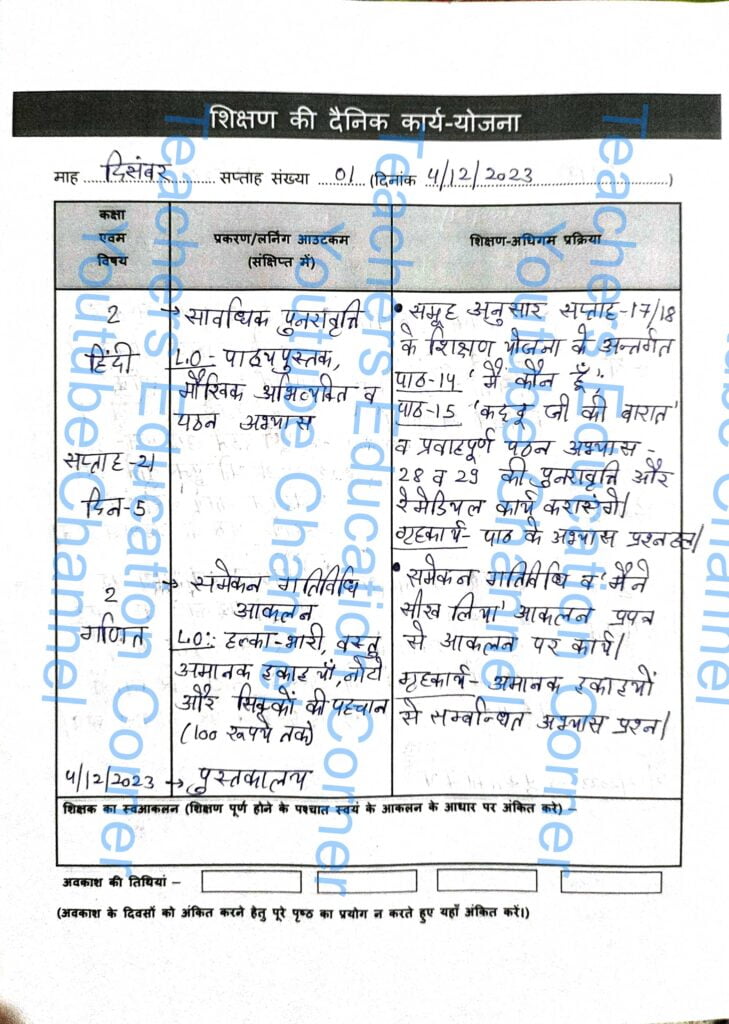 शिक्षण की दैनिक कार्य-योजना
माह दिसंबर सप्ताह संख्या 01 (दिनांक 4/12/2023)
कक्षा
एवम
विषय
प्रकरण/लर्निंग आउटकम
(संक्षिप्त में)
शिक्षण-अधिगम प्रक्रिया
2
हिंदी
सप्ताह-21
दिन-5
→ सावधिक पुनरावृत्ति
L.O- पाठ्यपुस्तक,
मौखिक अभिव्यक्ति व
पठन अभ्यास
• समूह अनुसार सप्ताह-17/18
के शिक्षण योजना के अन्तर्गत
पाठ-14 'मैं कौन हूँ',
पाठ-15 'कद्दू जी की बारात'
व प्रवाहपूर्ण पठन अभ्यास -
28 व 29 की पुनरावृत्ति और
रेमेडियल कार्य कराएंगे।
गृहकार्य- पाठ के अभ्यास प्रश्न हल।
2
गणित
→ समेकन गतिविधि
आकलन
L.O:- हल्का-भारी, वस्तु
अमानक इकाइयाँ, नोटों
और सिक्कों की पहचान
(100 रूपये तक)
• समेकन गतिविधि व 'मैंने
सीख लिया' आकलन प्रपत्र
से आकलन पर कार्य।
गृहकार्य- अमानक इकाइयों
से सम्बन्धित अभ्यास प्रश्न।
4/12/2023 → पुस्तकालय
शिक्षक का स्वआकलन (शिक्षण पूर्ण होने के पश्चात स्वयं के आकलन के आधार पर अंकित करे) –
अवकाश की तिथियां –
(अवकाश के दिवसों को अंकित करने हेतु पूरे पृष्ठ का प्रयोग न करते हुए यहाँ अंकित करें।)
Teachers Education Corner
Youtube Channel
Teachers Education Corner
Youtube Channel
Teachers Education Corner
Youtube Channel
Youtube Channel